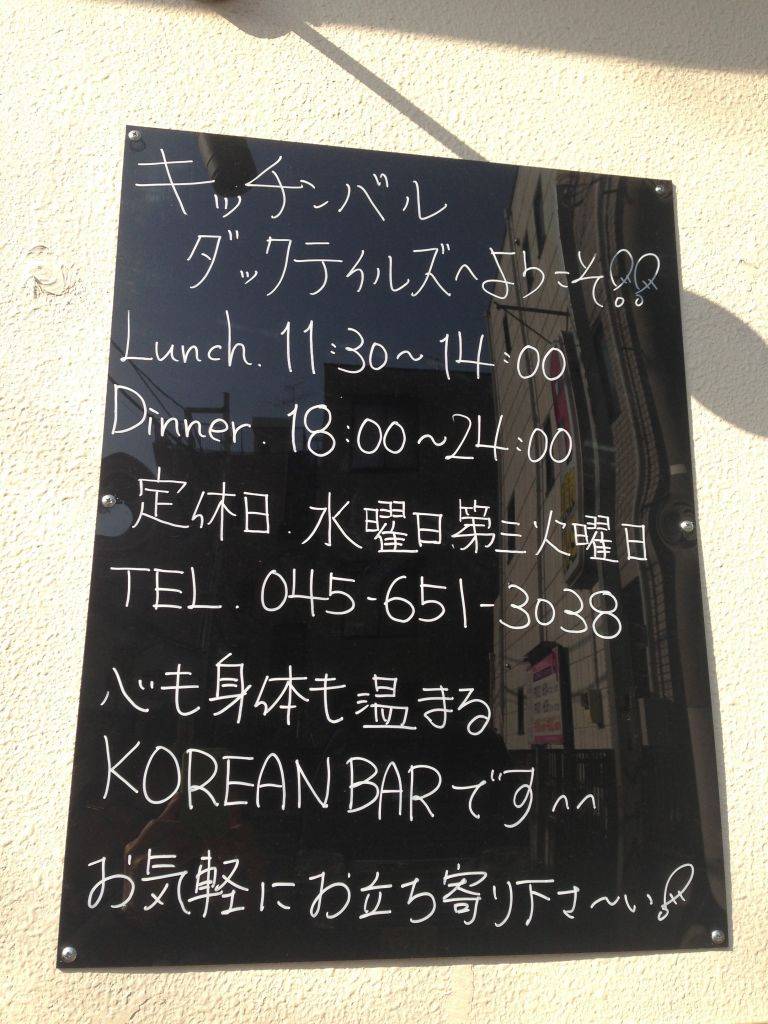 キッチンバル
ダックテイルズへようこそ!!
Lunch. 11:30~14:00
Dinner. 18:00~24:00
定休日.水曜日.第三火曜日
TEL. 045-651-3038
心も身体も温まる
KOREAN BARです^^
お気軽にお立ち寄り下さ~い!